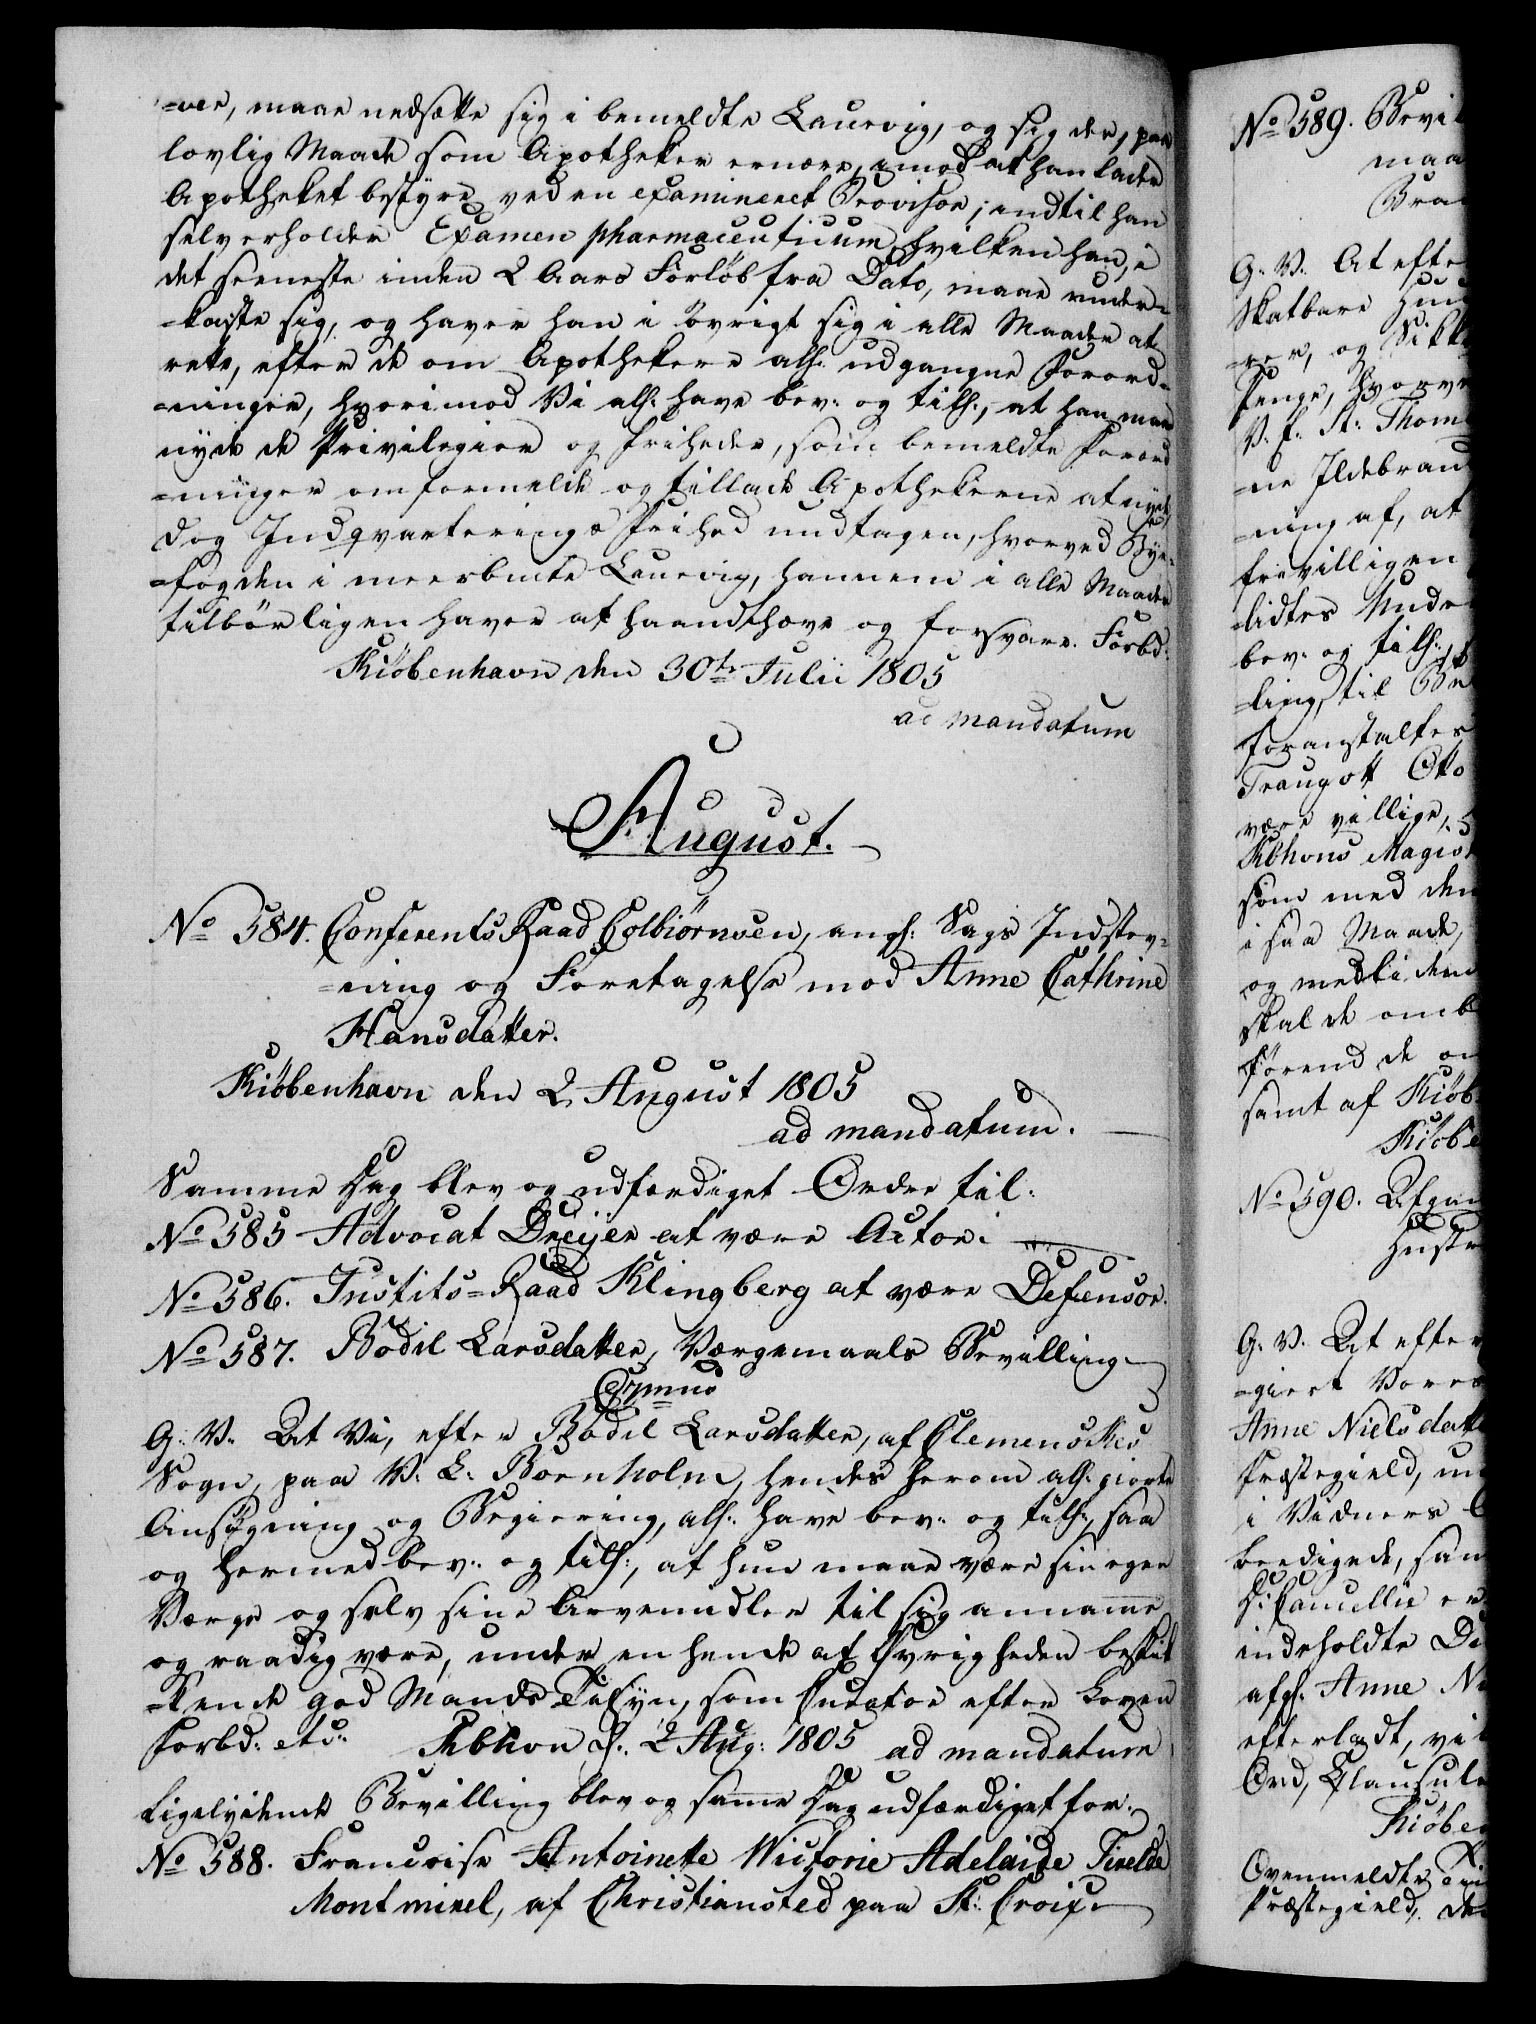 =ver, maae nedsætte sig i bemeldte Laurvig, og sig der, paa
lovlig Maade som Apotheker ernære, imod at han lader
Apotheket bestyre ved en examineret Provisor, indtil han
selv erholder Examen pharmaceuticum, hvilken han, i
det seeneste inden 2 Aars Forløb fra Dato, maae under=
=kaste sig, og haver han i øvrigt sig i alle Maader at
rette, efter de om Apothekere als: udgangne Forord=
=ninger, hvorimod Vi als: have bev: og tils:, at han maae
nyde de Privilegier og Friheder, som bemeldte Forord
=ninger omformelde og tillade Apothekerne at nyde,
dog Indqvarterings Frihed undtagen, hvorved Bye=
=fogden i meerbmte Laurvig, hannem i alle Maader
tilbørligen haver at haandthæve og forsvare. Forbd:
Kiøbenhavn den 30te Julii 1805
ad mandatum
August.
No 584. Conferents Raad Colbiørnsen, angl: Sags Indstev=
=ning og Foretagelse mod Anne Cathrine
Hansdatter.
Kiøbenhavn den 2 August 1805
ad mandatum.
Samme Dag blev og udfærdiget Ordre til:
No 585 Advocat Dreijer at være Actor.
No 586. Justits=Raad Klingberg at være Defensor.
No 587. Bodil Larsdatter, Værgemaals Bevilling
G: V: At Vi, efter Bodil Larsdatter, af Clemenskes
Sogn, paa V: L: Bornholm, hendes herom als: giorte
Ansøgning og Begiering, als: have bev: og tils:, saa
og hermed bev: og tils:, at hun maae være sin egen
Værge og selv sine Arvemidler til sig annamme
og raadig være, under en hende af Øvrigheden beskik
=kende god Mands Tilsyn, som Curator efter Loven
Forbd: etc: Kbhvn d: 2 Aug: 1805 ad mandatum
Ligelydende Bevilling blev og samme Dag udfærdiget for.
No 588. Francoise Antoinette Victorie Adelaide Tirelde
Montmirel, af Christiansted paa St: Croix
No 589. Bevil
maa
G: V: At efte
Skatbare
=rer, og Sikk
Penge, hvorv
V: f: St: Thom
=ne Ildebrand
=ning af, at
frivilligen
=lidtes Unde
bev: og tils:
=ling, til
foranstaltes
Traugott Otto
være villige,
Kbhvns Magis
som med den
i saa Maade,
og
skal de omb
førend de om
samt af Kiøb
Kiøbe
No 590. Afgan
Hustr
G: V: At efter
=giert Vores
Anne Nielsdatt
Præstegield, un
i Vidners
beedigede, sam
D: Cancellie er
indeholdte De
afgl: Anne Ni
efterladt, vi
Ord, Clausule
Kiøben
Ovenmeldte
Præstegield, de